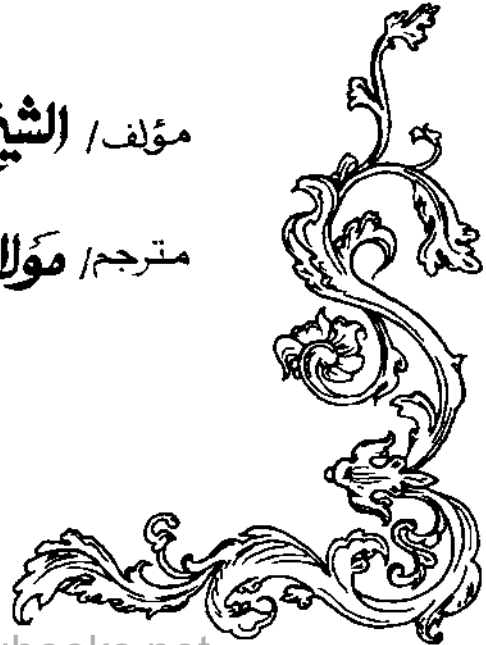 مؤلف/ الشيخ
مترجم/ مولا
books.net